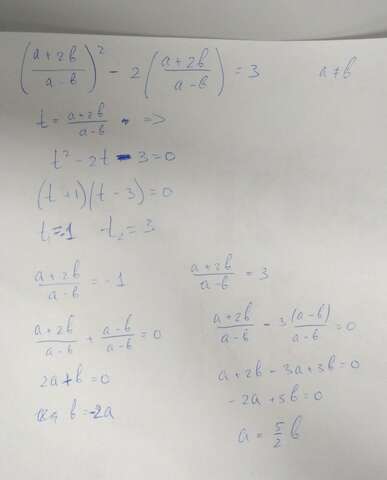 (a+2b/a-b)² - 2(a+2b/a-b) = 3 a≠b
t = a+2b/a-b =>
t² - 2t - 3 = 0
(t+1)(t-3) = 0
t₁ = -1 t₂ = 3
a+2b/a-b = -1
a+2b/a-b + a-b/a-b = 0
2a+b = 0
b = -2a
a+2b/a-b = 3
a+2b/a-b - 3(a-b)/a-b = 0
a+2b-3a+3b = 0
-2a+5b = 0
a = 5/2 b